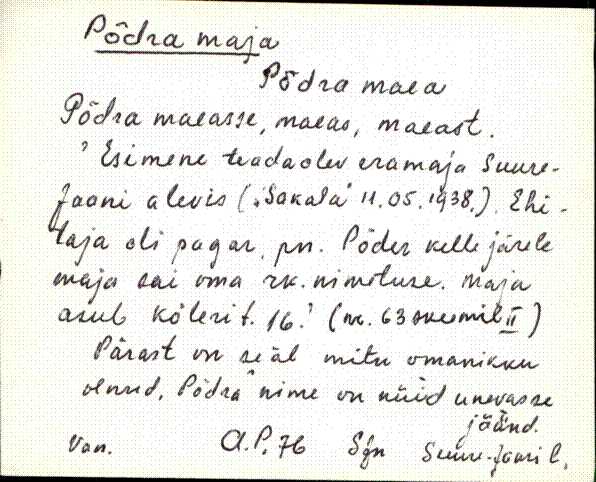 Põdra maja
Põdra maea
Põdra maeasse, maeas, maeast.
"Esimene teadaolev eramaja Suure-
Jaani alevis ("Sakala" 11.05.1938.). Ehi-
taja oli pagar, pn. Põder kelle järele
maja sai oma rk. nimetuse. Maja
asub Köleri t. 16." (nr. 63 skeemil II)
Pärast on seäl mitu omanikku
olnud, "Põdra" nime on nüid unevasse
jäänd.
Van. A.P. 76 Sjn Suure-Jaani l.